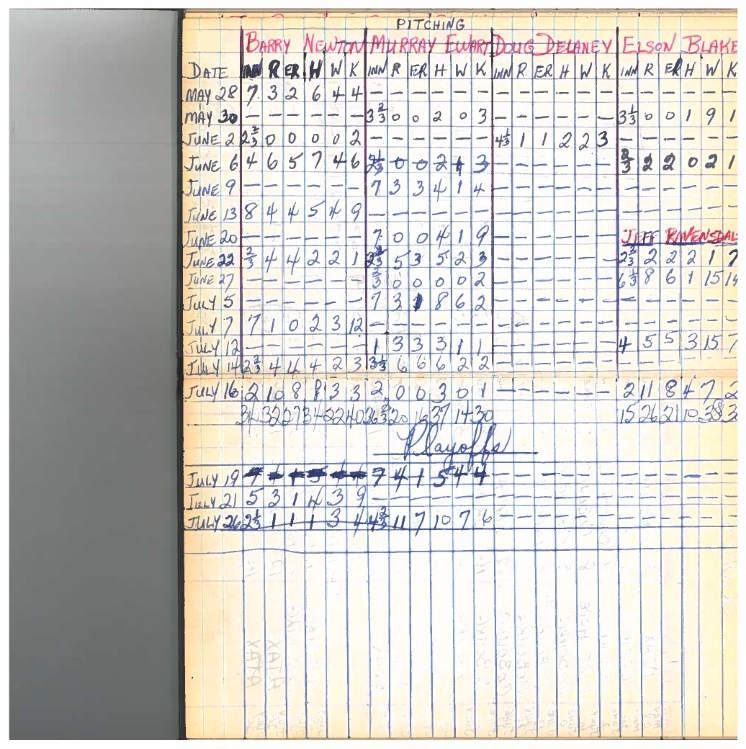 PITCHING
BARRY NEWTON MURRAY EWART DOUG DELANEY ELSON BLAKE
DATE INN R ER H W K INN R ER H W K INN R ER H W K INN R ER H W K
MAY 28 7 3 2 6 4 4 - - - - - - - - - - - - - - - - - -
MAY 30 - - - - - - 3 2/3 0 0 2 0 3 - - - - - - 3 1/3 0 0 1 9 1
JUNE 2 2 2/3 0 0 0 0 2 - - - - - - 4 1/3 1 1 2 2 3 - - - - - -
JUNE 6 4 6 5 7 4 6 2 1/3 0 0 2 1 3 - - - - - - 2/3 2 2 0 2 1
JUNE 9 - - - - - - 7 3 3 4 1 4 - - - - - - - - - - - -
JUNE 13 8 4 4 5 4 9 - - - - - - - - - - - - - - - - - -
JUNE 20 - - - - - - 7 0 0 4 1 9 - - - - - - JEFF
JUNE 22 2/3 4 4 2 2 1 2 2/3 5 3 5 2 3 - - - - - - 2 2/3 2 2 2 1 7
JUNE 27 - - - - - - 1/3 0 0 0 0 2 - - - - - - 6 1/3 8 6 1 15 14
JULY 5 - - - - - - 7 3 1 8 6 2 - - - - - - - - - - - -
JULY 7 7 1 0 2 3 12 - - - - - - - - - - - - - - - - - -
JULY 12 - - - - - - 1 3 3 3 1 1 - - - - - - 4 5 5 3 15 7
JULY 14 2 2/3 4 4 4 2 3 3 1/3 6 6 6 2 2 - - - - - - - - - - - -
JULY 16 2 10 8 8 3 3 2 0 0 3 0 1 - - - - - - 2 11 8 4 7 2
34 32 27 34 22 40 36 2/3 20 16 37 14 30 15 26 21 10 38 3
Playoffs
JULY 19 7 4 1 5 4 4 - - - - - - - - - - - -
JULY 21 5 3 1 4 3 9 - - - - - - - - - - - - - - - - - -
JULY 26 2 1/3 1 1 1 3 4 4 2/3 11 7 10 7 6 - - - - - - - - - - - -